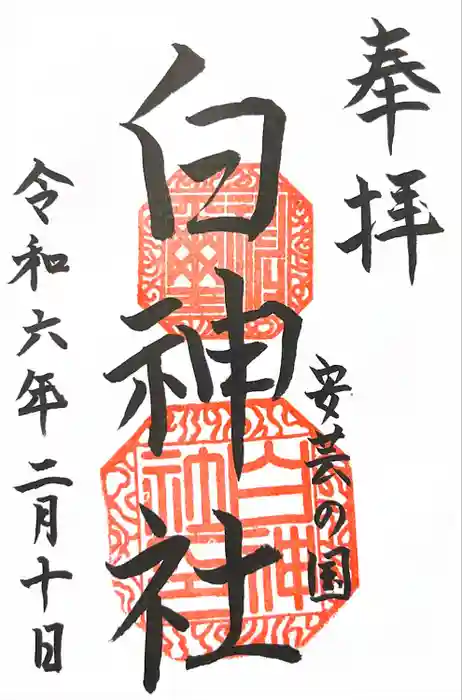 奉拝
安芸の国
白神社
令和六年二月十日
白神社